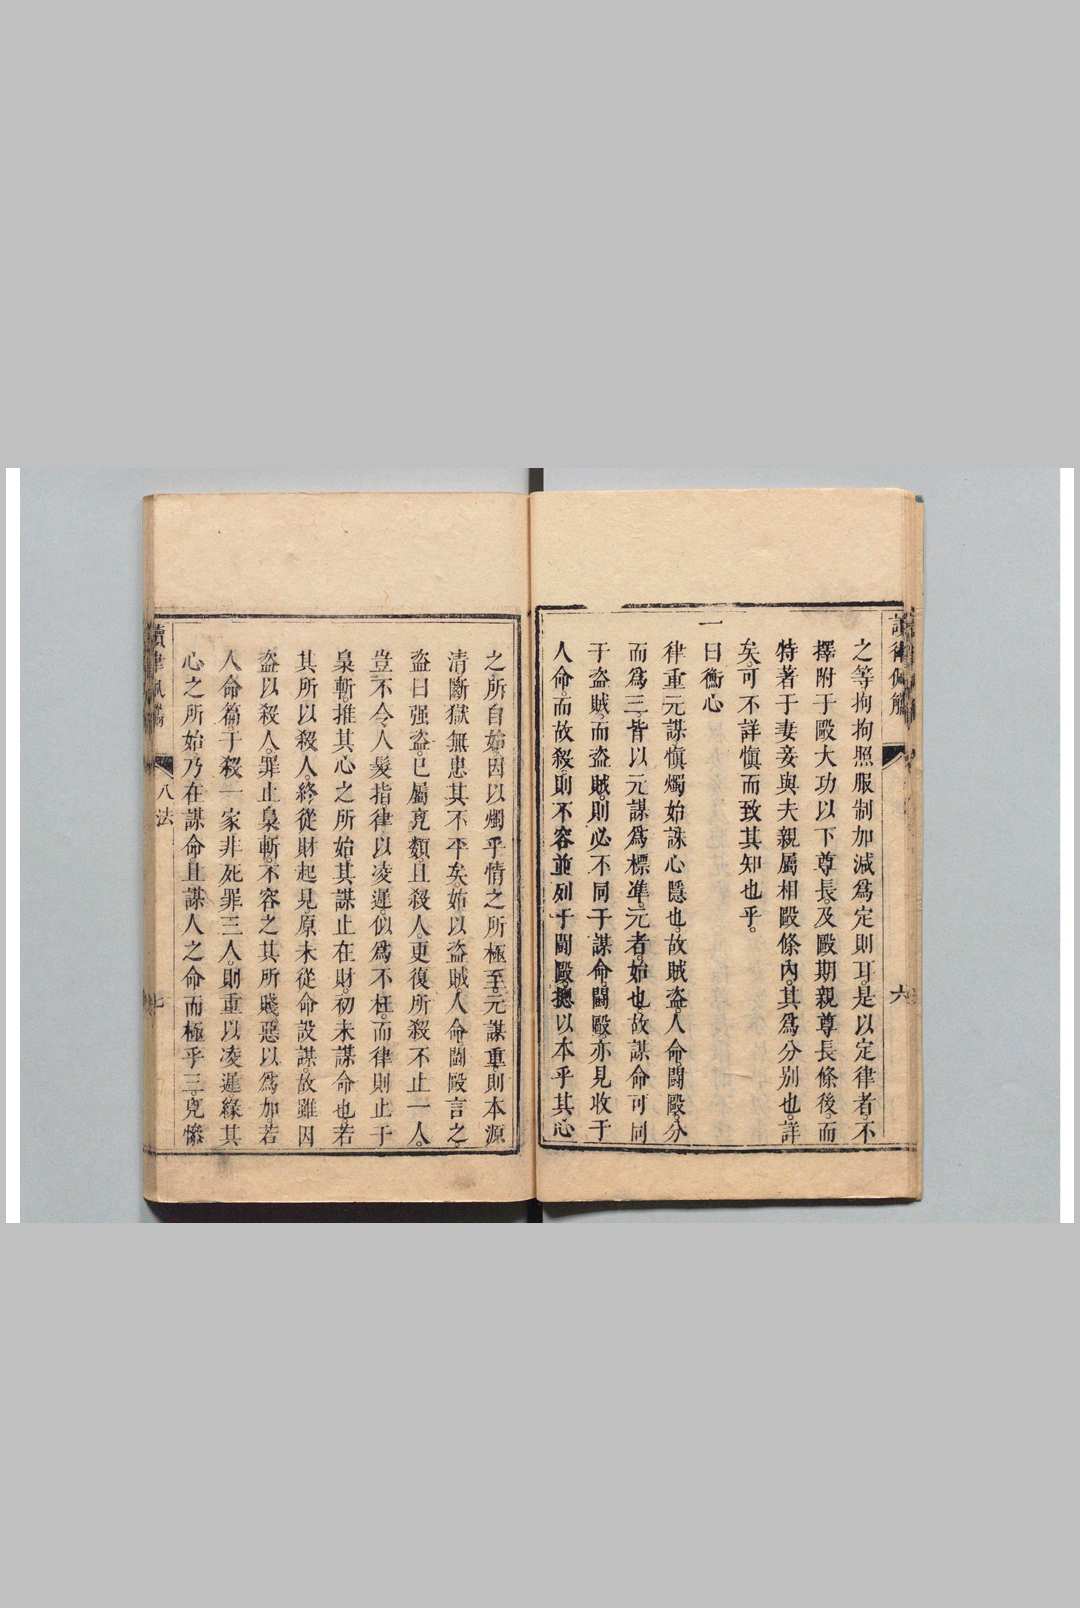 之等拘拘照服制加減爲定則耳。是以定律者。不
擇附于毆大功以下尊長。及毆期親尊長條後。而
特著于妻妾與夫親屬相毆條內。其爲分別也。詳
矣。可不詳愼而致其知也乎。
一曰衡心
律重元謀愼燭始誅心隱也。故賊盗。人命鬪毆。分
而爲三。皆以元謀爲標準。元者。始也。故謀命可同
于盗賊。而盗賊。則必不同于謀命。鬪毆。亦見收于
人命。而故殺。則不容並列于鬪毆。摠以本乎其心
之所自始。因以燭乎情之所極至。元謀重。則本源
清。斷獄無患其不平矣。姑以盗賊。人命鬪毆言之。
盗曰强盗。已屬兇類。且殺人。更復所殺不止一人。
豈不令人髮指。律以凌遲。似爲不枉。而律則止于
梟斬。推其心之所始。其謀止在財。初未謀命也。若
其所以殺人。終從財起見。原未從命設謀。故雖因
盗以殺人。罪止梟斬。不容之其所賤惡以爲加。若
人命篇。于殺一家非死罪三人。則重以凌遲。緣其
心之所始。乃在謀命。且謀人之命而極乎三。兇慘
八法
七
六